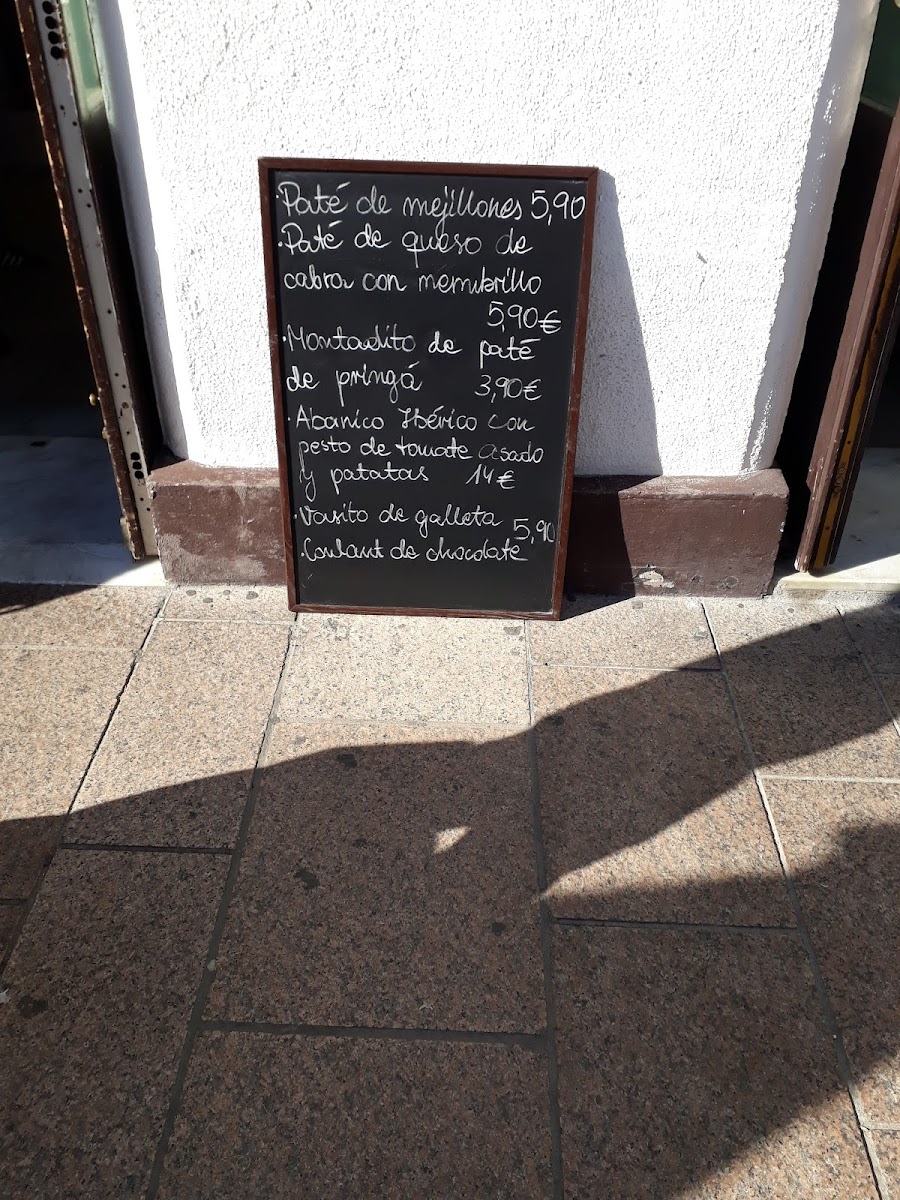 ·Paté de mejillones 5,90
·Paté de queso de
cabra con membrillo
5,90€
·Montadito de paté
de pringá 3,90€
·Abanico Ibérico con
pesto de tomate asado
y patatas 14€
·Vasito de galleta 5,90
·Coulant de chocolate